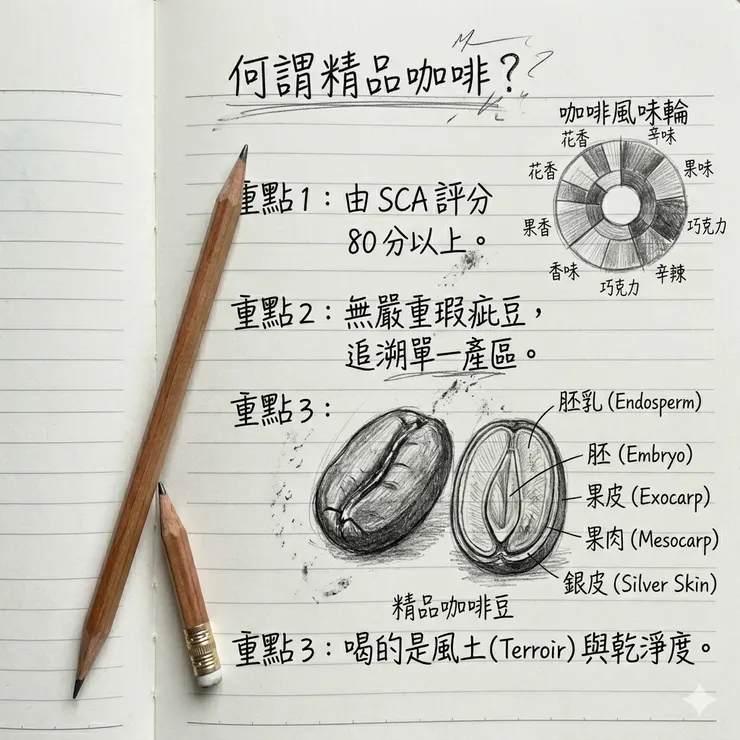 何謂精品咖啡？
咖啡風味輪
花香
辛味
花香
果味
果香
巧克力
香味
辛辣
巧克力
重點1：由 SCA 評分
80分以上。
重點2：無嚴重瑕疵豆，
追溯單一產區。
重點3：
胚乳 (Endosperm)
胚 (Embryo)
果皮 (Exocarp)
果肉 (Mesocarp)
銀皮 (Silver Skin)
精品咖啡豆
重點3：喝的是風土(Terroir)與乾淨度。